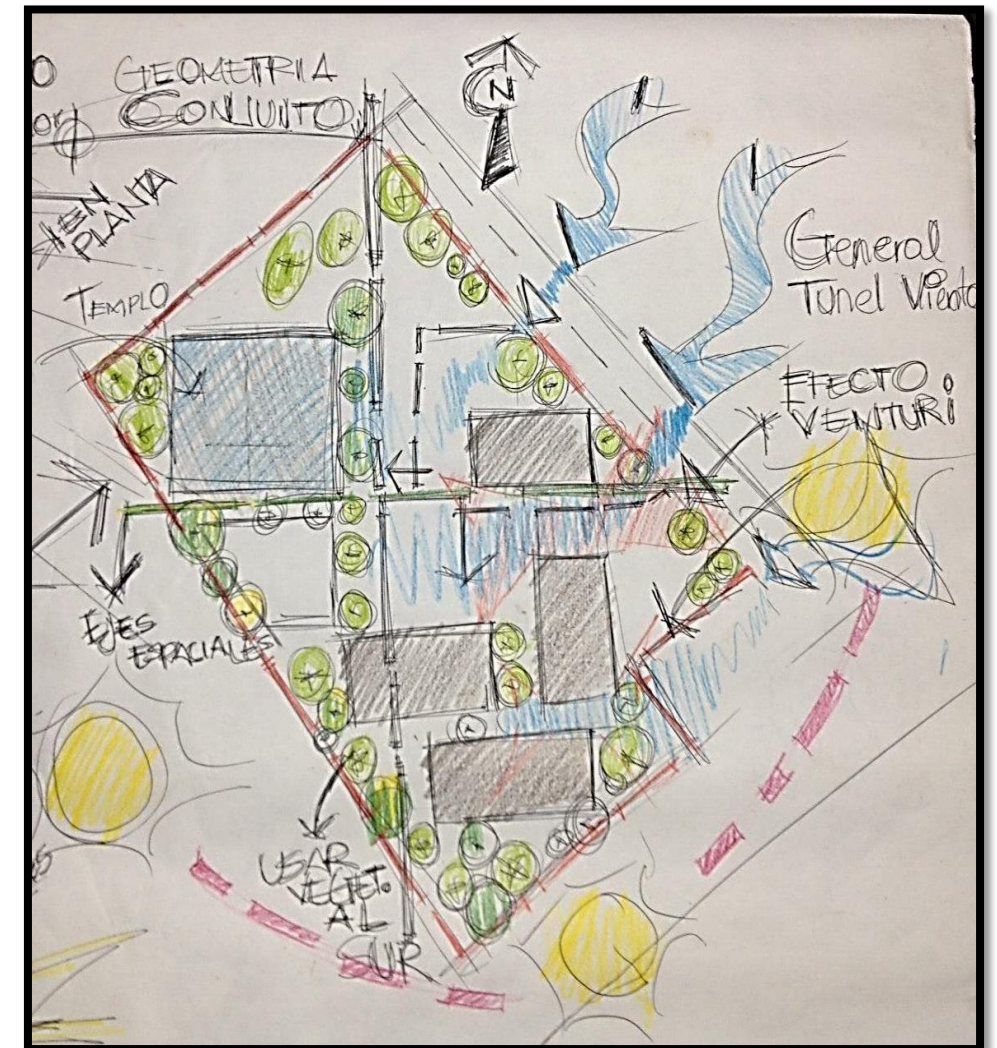 O GEOMETRIA
CONJUNTO
N
EN
PLANTA
TEMPLO
General
Tunel Viento
EFECTO
VENTURI
EJES
ESPACIALES
USAR
VEGET.
AL
SUR